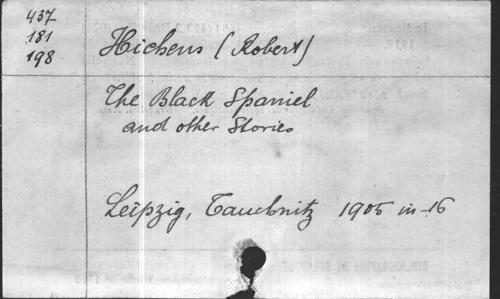 437
181
198
Hichens (Robert)
The Black Spaniel
and other Stories
Leipzig, Tauchnitz 1905 in-16